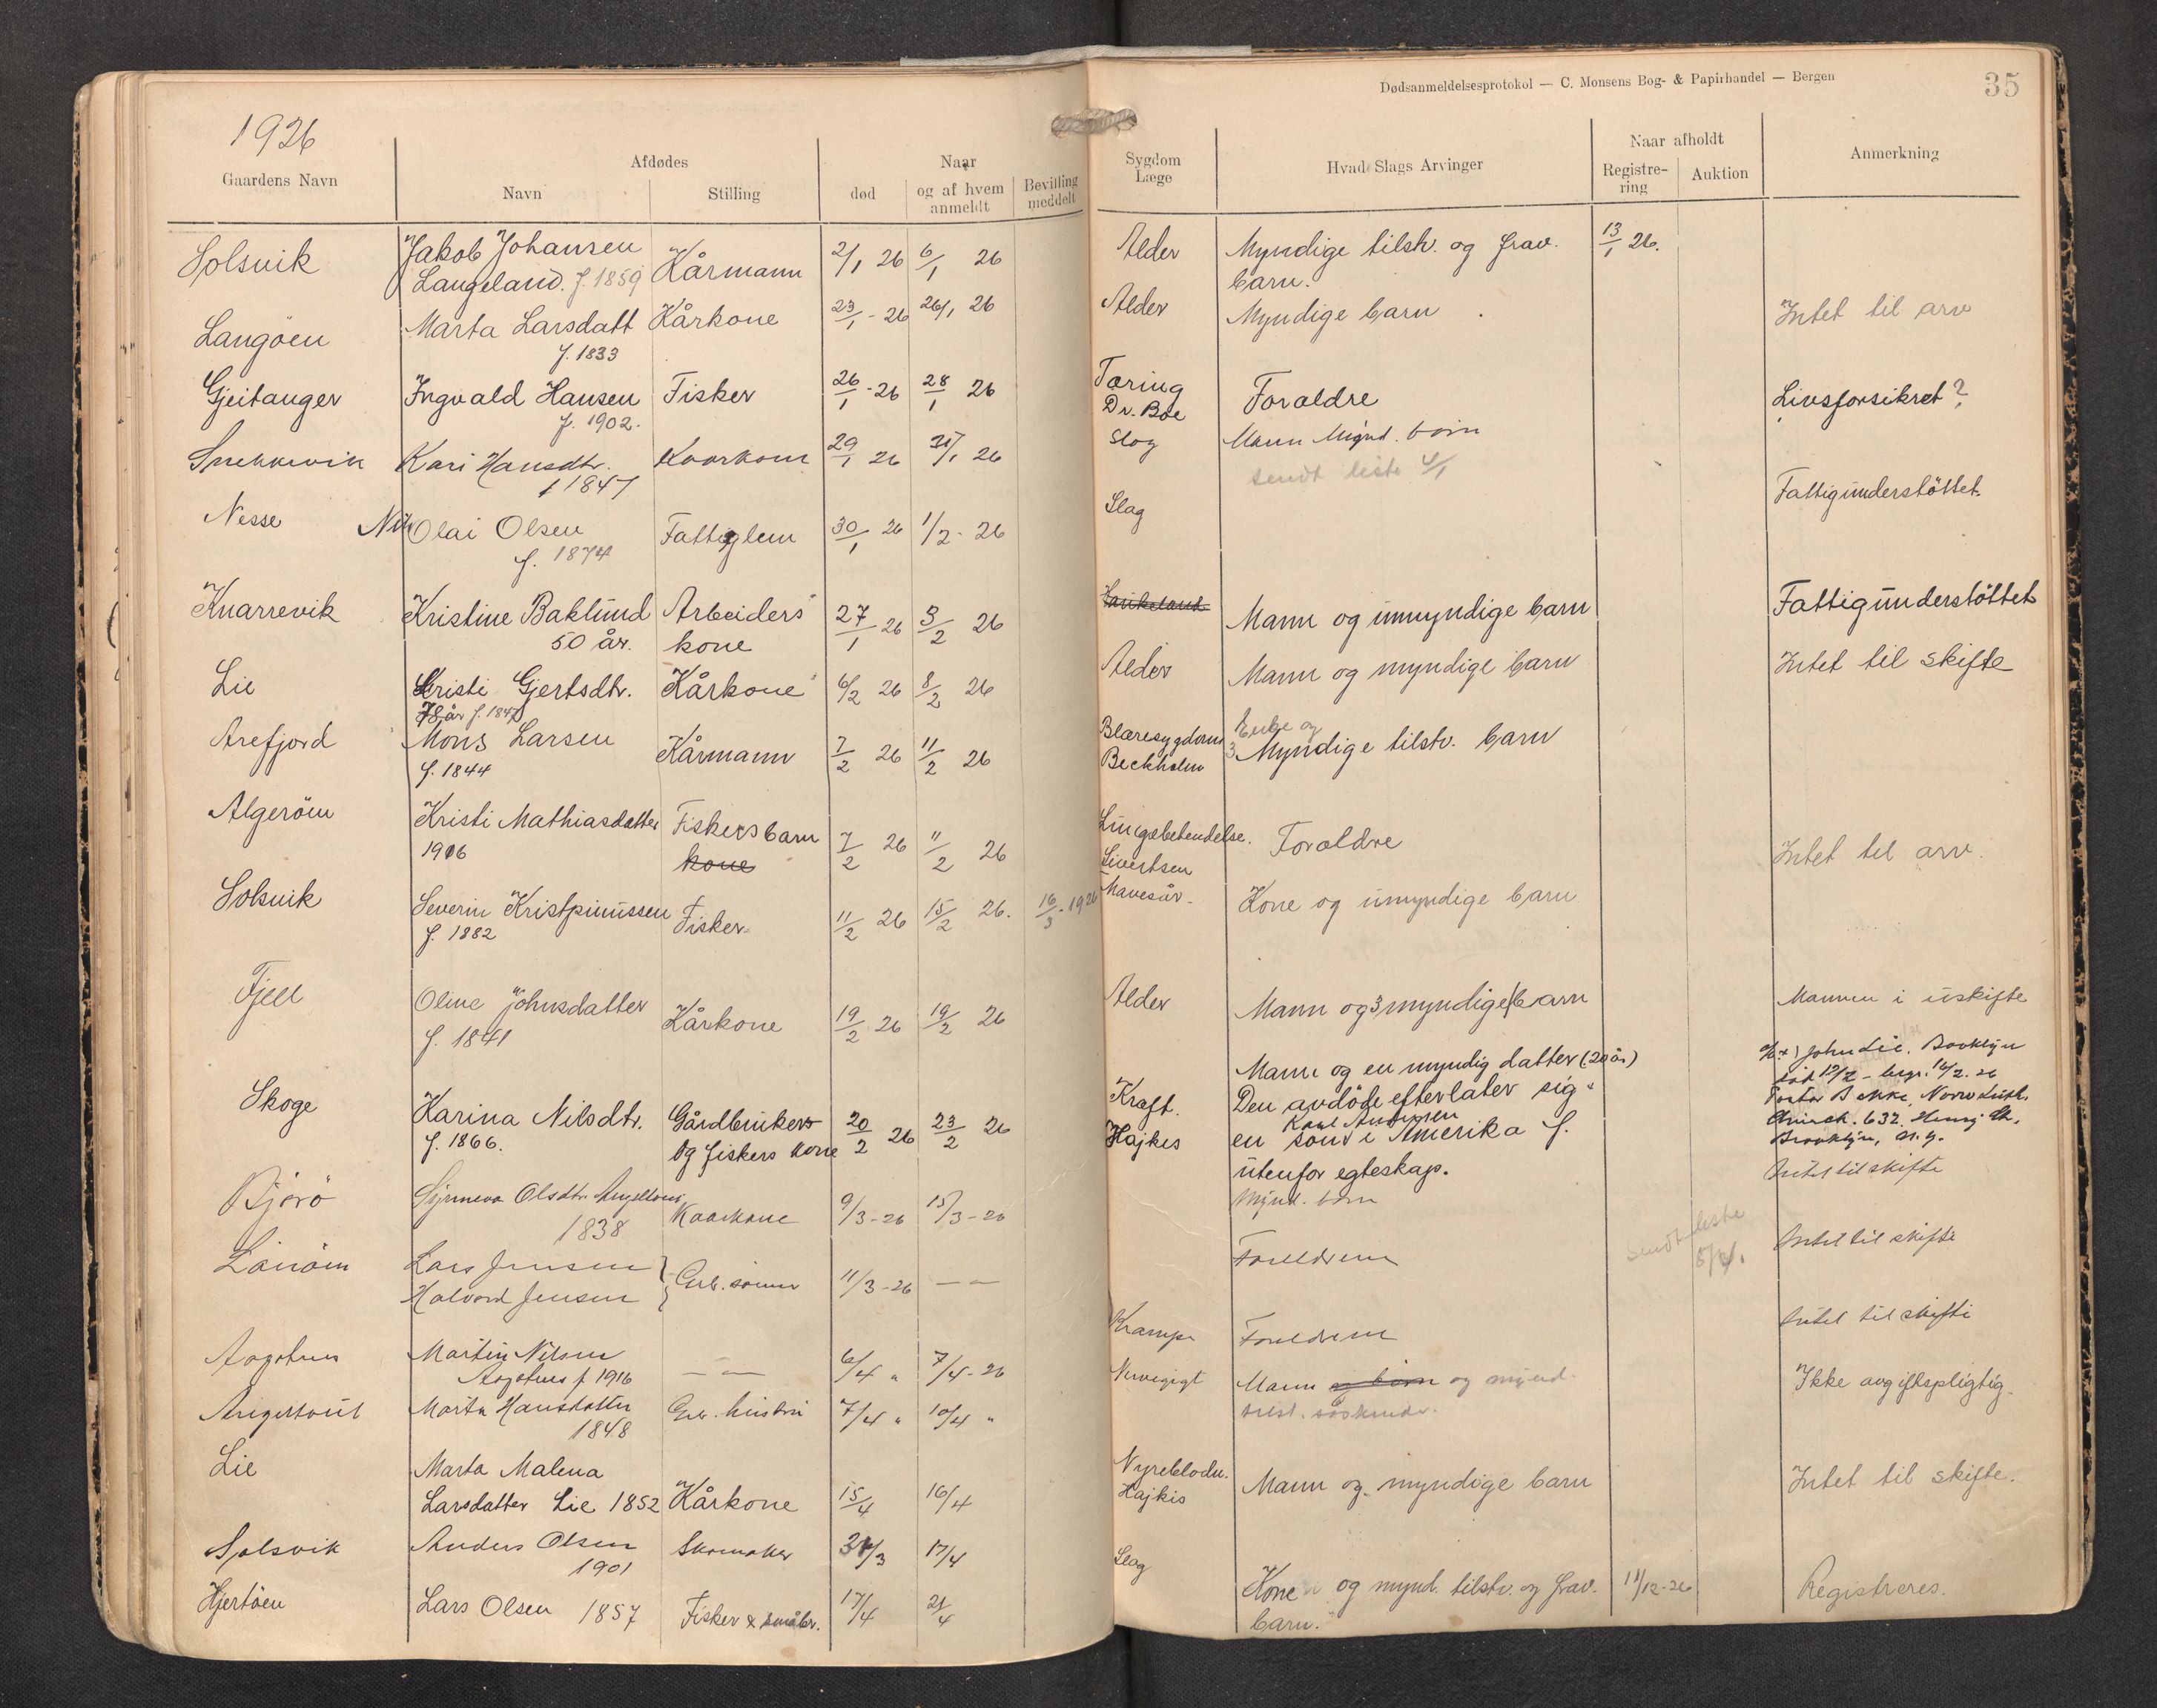 Dødsanmeldelsesprotokol — C. Monsens Bog- & Papirhandel — Bergen
35
1926
Gaardens Navn
Afdødes
Navn
Stilling
Naar
død
og af hvem anmeldt
Bevilling meddelt
Sygdom
Læge
Hvad Slags Arvinger
Naar afholdt
Registrering
Auktion
Anmerkning
Solsvik Jakob Johansen Kårmann 2/1 26 6/1 26 Alder Myndige tilst. og frav. 13/1 26.
Langeland. f. 1859 barn.
Langöen Marta Larsdatt Kårkone 23/1 - 26 26/1 26 Alder Myndige barn Intet til arv
f. 1833
Gjeitanger Ingvald Hansen Fisker 26/1 - 26 28/1 26 Tæring Foraldre Livsforsikret?
f. 1902. Dr. Boe
Snekkevik Kari Hansdtr. Kaarkone 29/1 26 31/1 26 Slag Mann Mynd. børn
1847 sendt liste
Nesse Olai Olsen Fattiglem 30/1 26 1/2 - 26 Slag Fattigunderstöttet
f. 1874
Knarrevik Kristine Baklund Arbeiders 27/1 26 3/2 26 Haukeland Mann og umyndige barn Fattigunderstöttet
50 år. kone
Lie Kristi Gjertsdtr. Kårkone 6/2 26 8/2 26 Alder Mann og myndige barn Intet til skifte
78 år f. 1847
Arefjord Mons Larsen Kårmann 7/2 26 11/2 26 Blæresygdom Enke og
f. 1844 Beckholm 3 Myndige tilstv. barn
Algeröen Kristi Mathiasdatter Fiskers barn 7/2 26 11/2 26 Lungebetendelse. Foraldre Intet til arv.
1916 kone Sivertsen
Solsvik Severin Kristpinussen Fisker 11/2 26 15/2 26. 16/3 - 1926 Mavesår. Kone og umyndige barn
f. 1882
Fjell Oline Johnsdatter Kårkone 19/2 26 19/2 26 Alder Mann og 3 myndige barn Mannen i uskifte
f. 1841
Mann og en myndig datter (20 år) John Lie. Brooklyn
Skoge Karina Nilsdtr. Gårdbrukers 20/2 26 23/2 26 Kræft. Den avdöde efterlater sig
f. 1866. og fiskers kone Hajkes en sönn i Amerika f.
Church. 632. Henry St.
Brooklyn, N.Y.
utenfor egteskap. Intet til skifte
Bjorö Synneva Olsdtr. Kaarkone 9/3 - 26 15/3 - 26 Mynd. børn
1838
Lars Jensen Grb. sønner 11/3 - 26 — — Foreldrene sendt liste Intet til skifte
Halvard Jensen
Martin Nilsen — — 6/4 " 7/4 - 26 Krampe Foreldrene Intet til skifte
f 1916
Marta Hansdatter Grb. hustru 7/4 " 10/4 " Nervegigt Mann og børn og mynd. Ikke avgiftspligtig
1848 tilst. søskende.
Lie Marta Malena Nyreblødn.
Larsdatter Lie 1852 Kårkone 15/4 16/4 Hajkis Mann og myndige barn Intet til skifte.
Solsvik Anders Olsen Skomaker 31/3 17/4 Slag
1901
Hjertöen Lars Olsen 1857 Fisker & småbr. 17/4 21/4 Kone og mynd. tilstv. og frav. 11/12 - 26 Registreres.
barn.